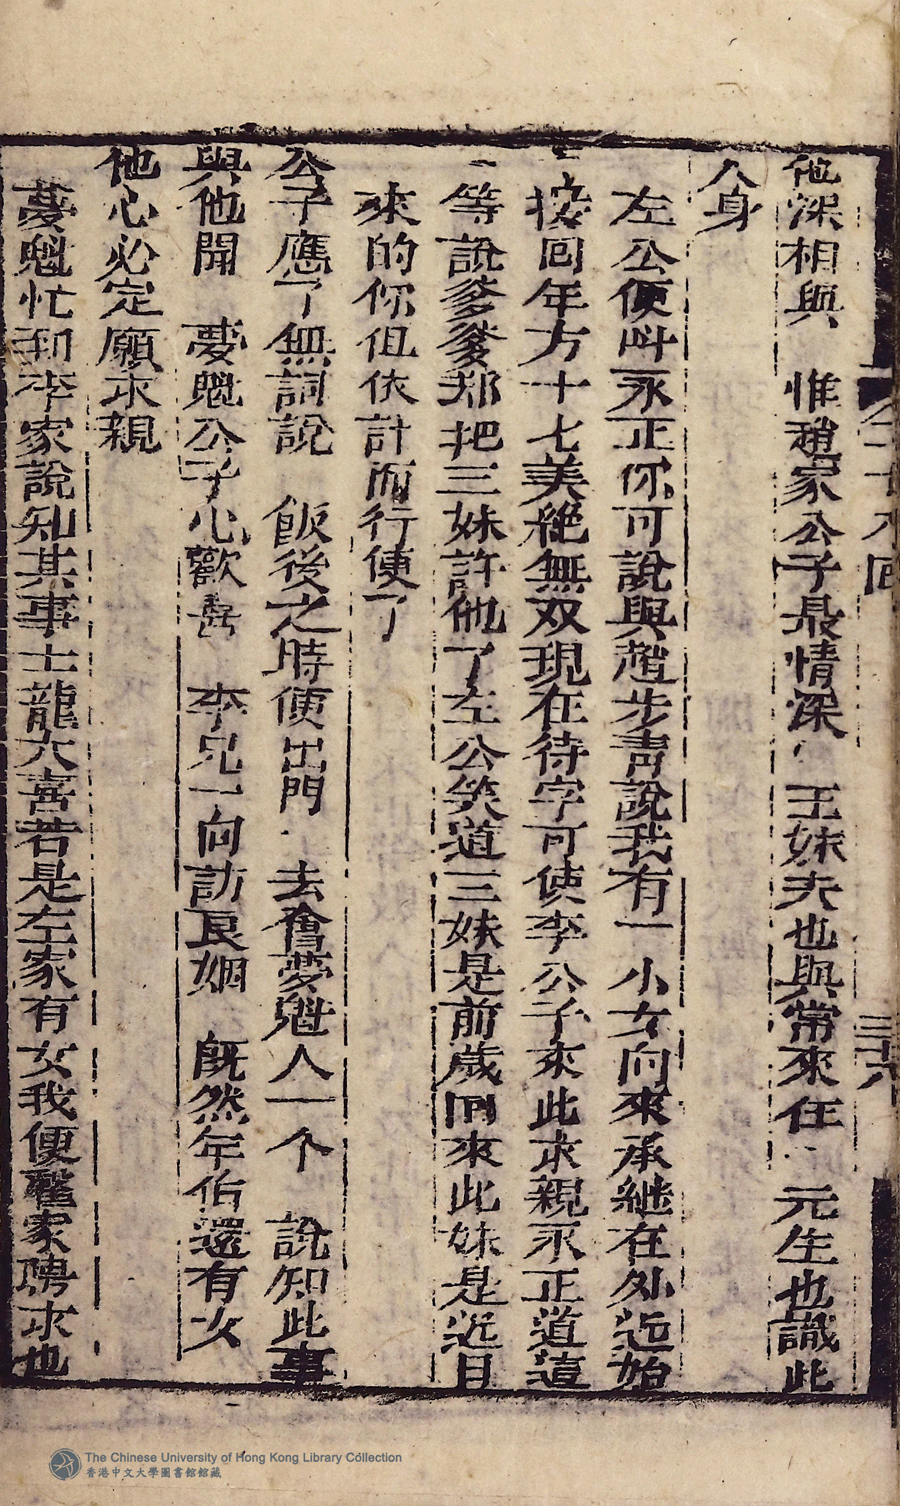 二十八回 三六
他深相與 惟趙家公子最情深 王妹夫也與常來往 元生也識此
人身
左公便叫永正你可說與趙步青說我有一小女向來承繼在外近始
接回年方十七美絕無双現在待字可使李公子來此求親永正道這
等說爹爹郑把三妹許他了左公笑道三妹是前歲囬來此妹是近日
來的你但依計而行便了
公子應了無詞說 飯後之時便出門 去會夢魁人一个 說知此事
與他聞 夢魁公子心歡喜 李兄一向訪良姻 既然年伯還有女
他心必定願求親
夢魁忙到李家說知其事士龍大喜若是左家有女我便蹇家聘求也
The Chinese University of Hong Kong Library Collection
香港中文大學圖書館館藏